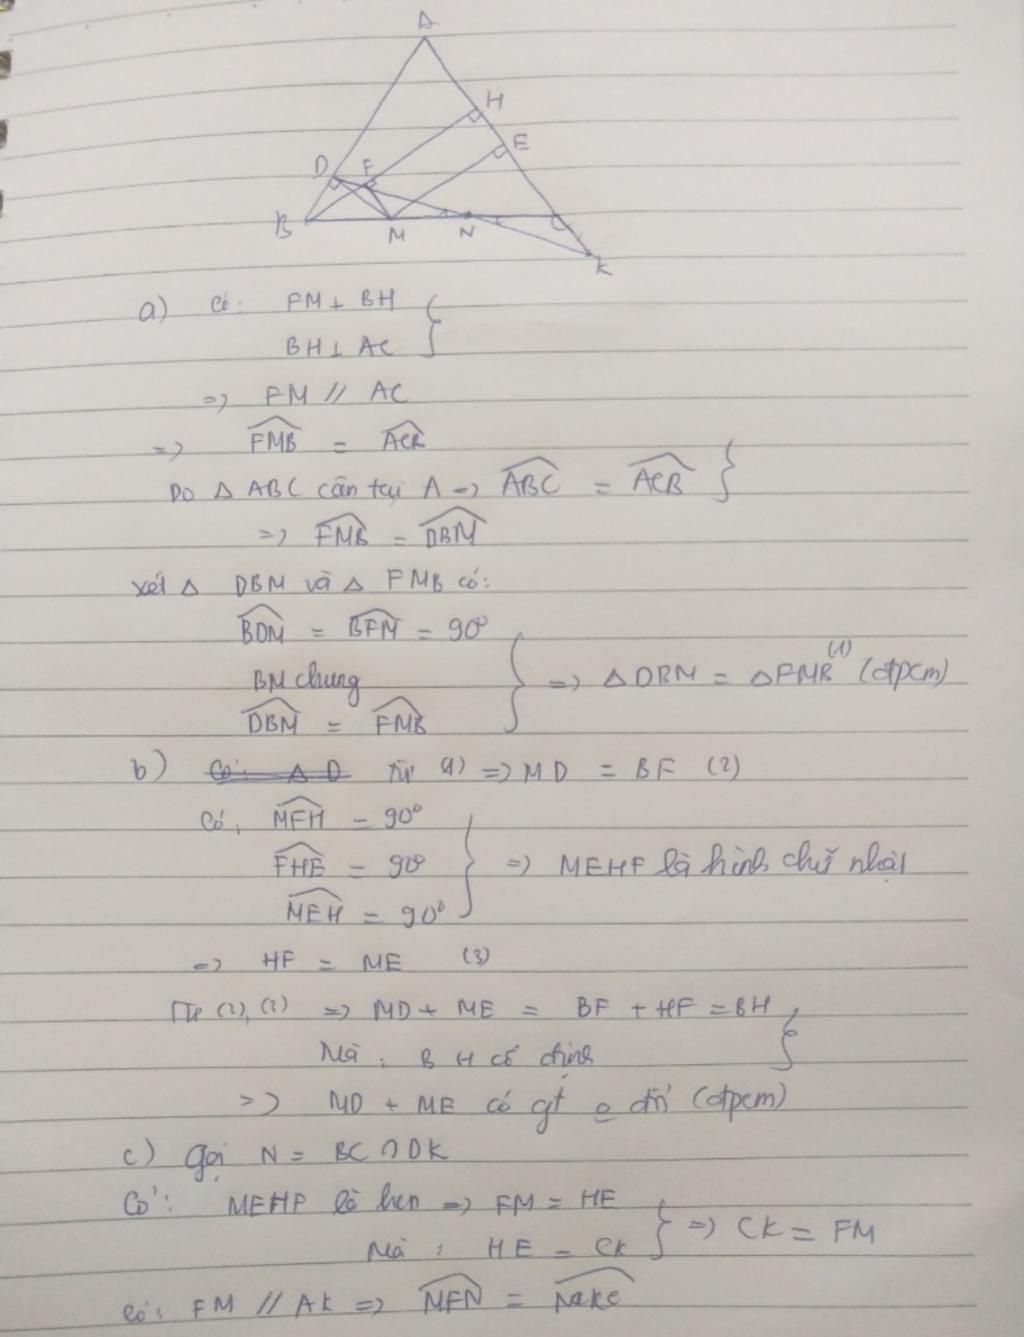 A
H
E
D
F
B
M
N
C
K
a) Có: FM ⊥ BH
BH ⊥ AC
=> FM // AC
=> FMB = ACB
Do △ ABC cân tại A => ABC = ACB
=> FMB = DBM
Xét △ DBM và △ FMB có:
BDM = BFM = 90°
BM chung
DBM = FMB
=> △DBM = △FMB (1) (đpcm)
b) Từ (1) => MD = BF (2)
Có: MFH = 90°
FHE = 90°
MEH = 90°
=> MEHF là hình chữ nhật
=> HF = ME (3)
Từ (2), (3) => MD + ME = BF + HF = BH
Mà: BH cố định
=> MD + ME có gt o đổi (đpcm)
c) Gọi N = BC ∩ DK
Có: MEHF là hcn => FM = HE
Mà: HE = CK
=> CK = FM
Có: FM // AK => MFN =